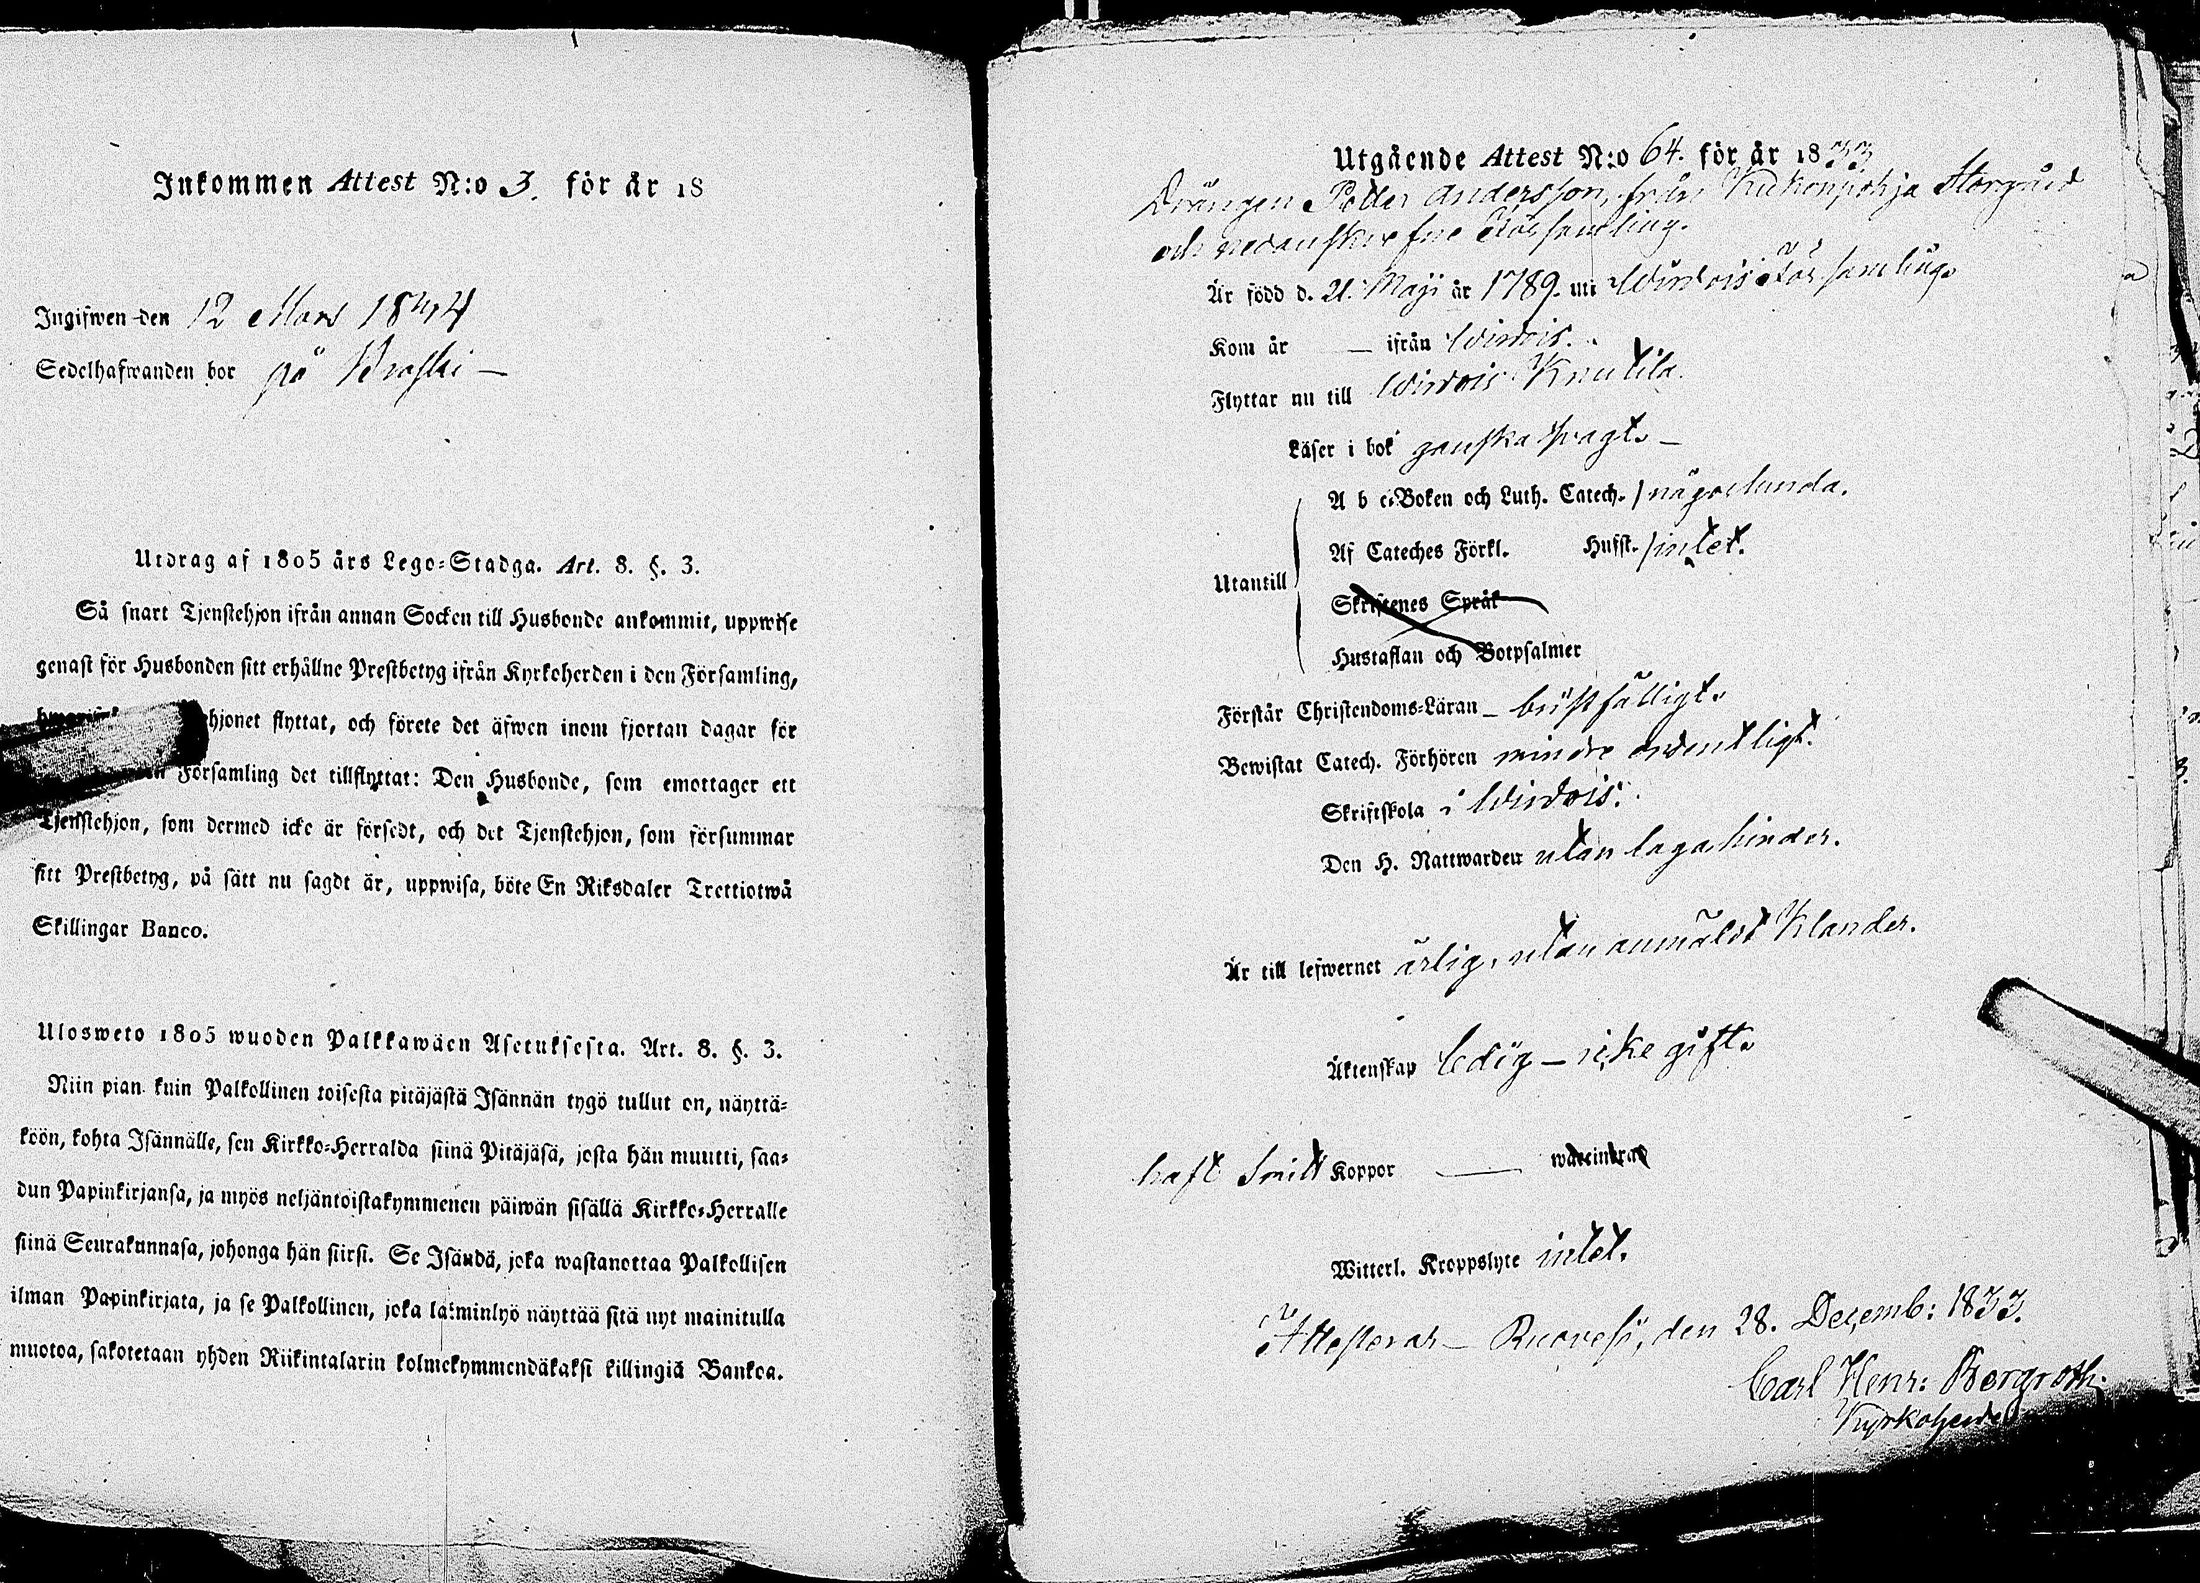 Inkommen Attest N:o 3. för år 18
Ingifwen den 12 Mars 1844
Sedelhafwanden bor på
Utdrag af 1805 års Lego-Stadga. Art. 8. §. 3.
Så snart Tjenstehjon ifrån annan Socken till Husbonde ankommit, uppwise
genast för Husbonden sitt erhållne Prestbetyg ifrån Kyrkoherden i den Församling,
hjonet flyttat, och förete det äfwen inom fjortan dagar för
Församling det tillflyttat: Den Husbonde, som emottager ett
Tjenstehjon, som dermed icke är försedt, och det Tjenstehjon, som försummar
sitt Prestbetyg, på sätt nu sagdt är, uppwisa, böte En Riksdaler Trettiotwå
Skillingar Banco.
Ulosweto 1805 wuoden Palkkawäen Asetuksesta. Art. 8. §. 3.
Niin pian kuin Palkollinen toisesta pitäjästä Isännän tygö tullut on, näyttä-
köön, kohta Isännälle, sen Kirkko-Herralda siinä Pitäjäsä, josta hän muutti, saa-
dun Papinkirjansa, ja myös neljäntoistakymmenen päiwän sisällä Kirkko-Herralle
siinä Seurakunnasa, johonga hän siirsi. Se Isändä, joka wastanottaa Palkollisen
ilman Papinkirjata, ja se Palkollinen, joka laiminlyö näyttää sitä nyt mainitulla
muotoa, sakotetaan yhden Riikintalarin kolmekymmendäkaksi killingiä Bankoa.
Utgående Attest N:o 64. för år 1833
Drängen Petter Andersson, från Kukonpohja Storgård
och nedanskrefne Församling.
Är född d. 21. Maji år 1789. uti Wirdois Församling.
Kom år — ifrån Wirdois.
Flyttar nu till Wirdois Knutila.
Läser i bok ganska swagt. —
A b c-Boken och Luth. Catech. någorlunda.
Af Cateches Förkl. Husst. intet.
Utantill
Skriftenes Språk
Hustaflan och Botpsalmer
Förstår Christendoms-Läran — bristfälligt.
Bewistat Catech. Förhören mindre ordentligt.
Skriftskola i Wirdois.
Den H. Nattwarden utan laga hinder.
Är till lefwernet ärlig, utan anmäldt klander.
Äktenskap ledig — icke gift.
haft Smitt Koppor — waccinerad
Witterl. Kroppslyte intet.
Attesterar — Ruovesi, den 28. Decemb: 1833.
Carl Henr: Bergroth.
Kyrkoherde